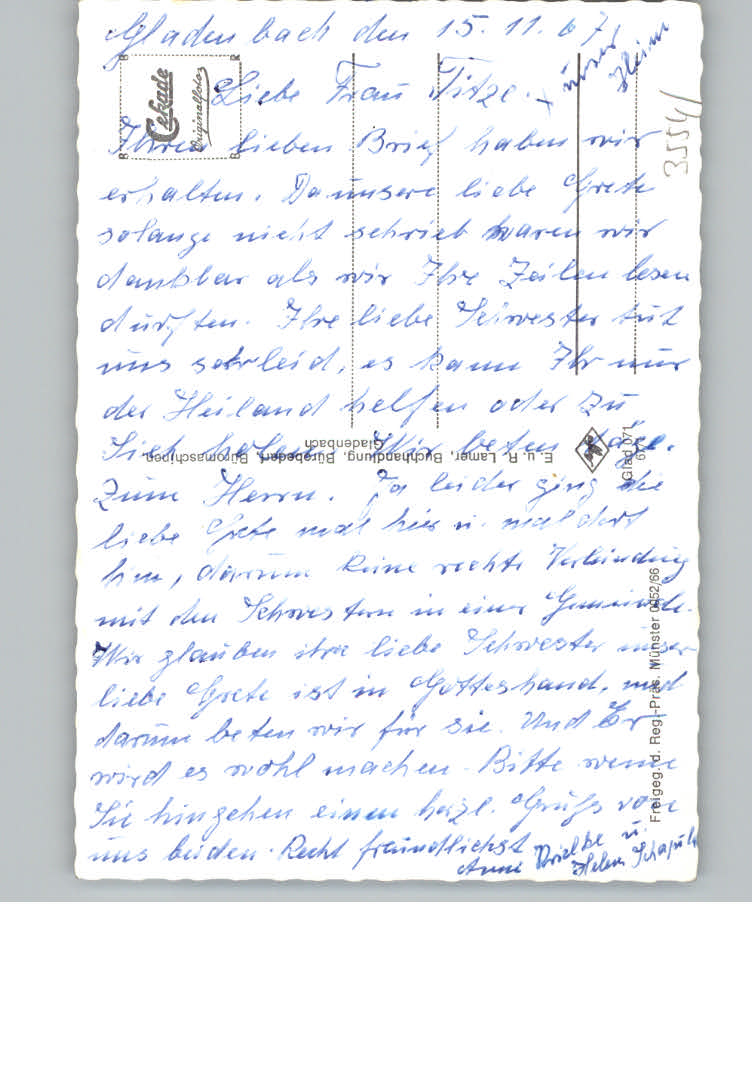 Gladenbach den 15.11.67
unser Heim
Liebe Frau Titze.
Ihren lieben Brief haben wir
erhalten. Da unsere liebe Grete
solange nicht schrieb waren wir
dankbar als wir Ihre Zeilen lesen
durften. Ihre liebe Schwester tut
uns sehr leid, es kann Ihr nur
der Heiland helfen oder zu
Sich holen. Wir beten
zum Herrn. Ja leider ging die
liebe Grete mal hier u. mal dort
hin, darum keine rechte Verbindung
mit den Schwestern in einer Gemeinde.
Wir glauben ihre liebe Schwester unser
liebe Grete ist in Gotteshand. und
darum beten wir für sie. Und Er
wird es wohl machen. Bitte wenn
Sie hingehen einen herzl. Gruß von
uns beiden. Recht freundlichst
Anni u.
Helene
3554/
Cekade
Originalfoto
E. u. R. Lamer, Buchhandlung, Bürobedarf, Büromaschinen
Gladenbach
Glad 071
Freigeg. d. Reg.-Präs. Münster 0852/66